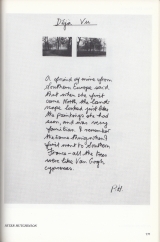 Déjà Vu
A friend of mine from
Southern Europe said
that when she first
came North the land-
scape looked just like
the paintings she had
seen, and was very
familiar. I remember
the same thing when I
first went to Southern
France - all the trees
were like Van Gogh
cypresses.
P.H.
PETER HUTCHINSON